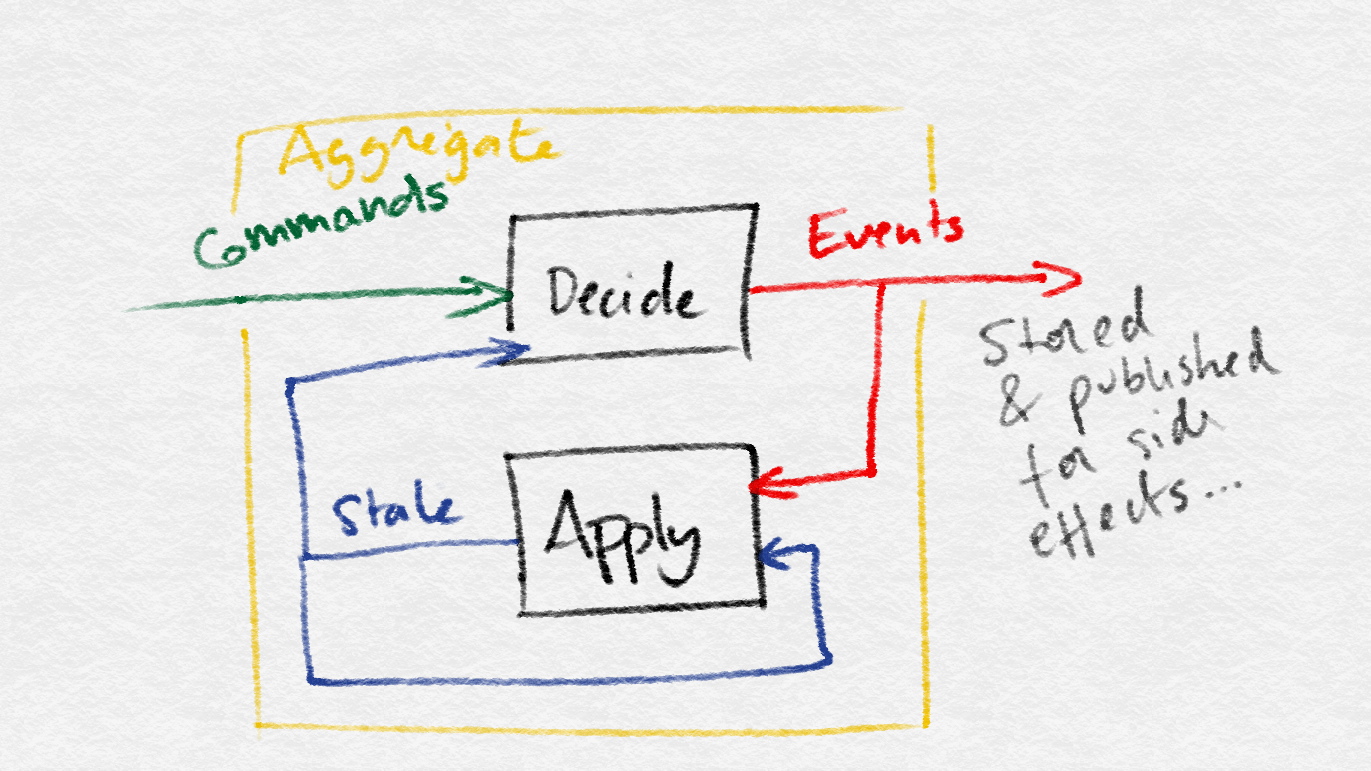 Aggregate
Commands
Events
Decide
Stored
& published
for side
effects...
State
Apply